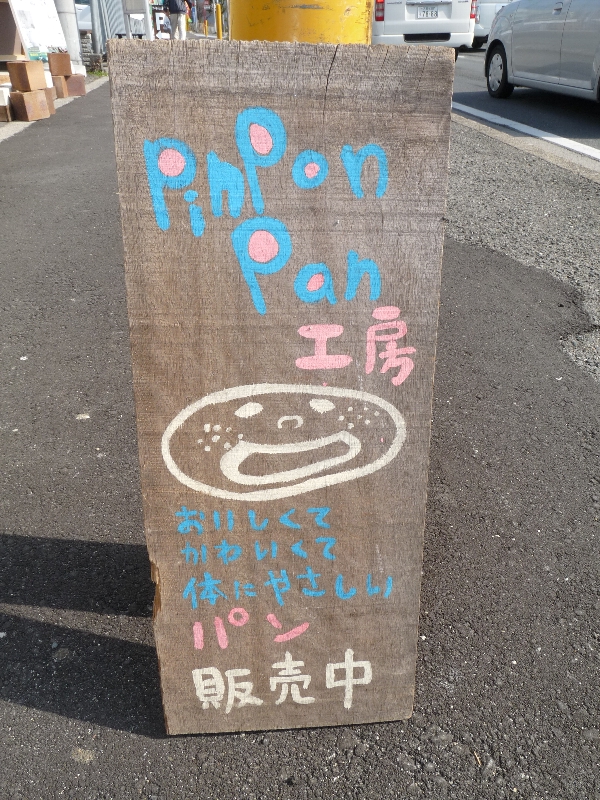 PinPon
Pan
工房
おいしくて
かわいくて
体にやさしい
パン
販売中